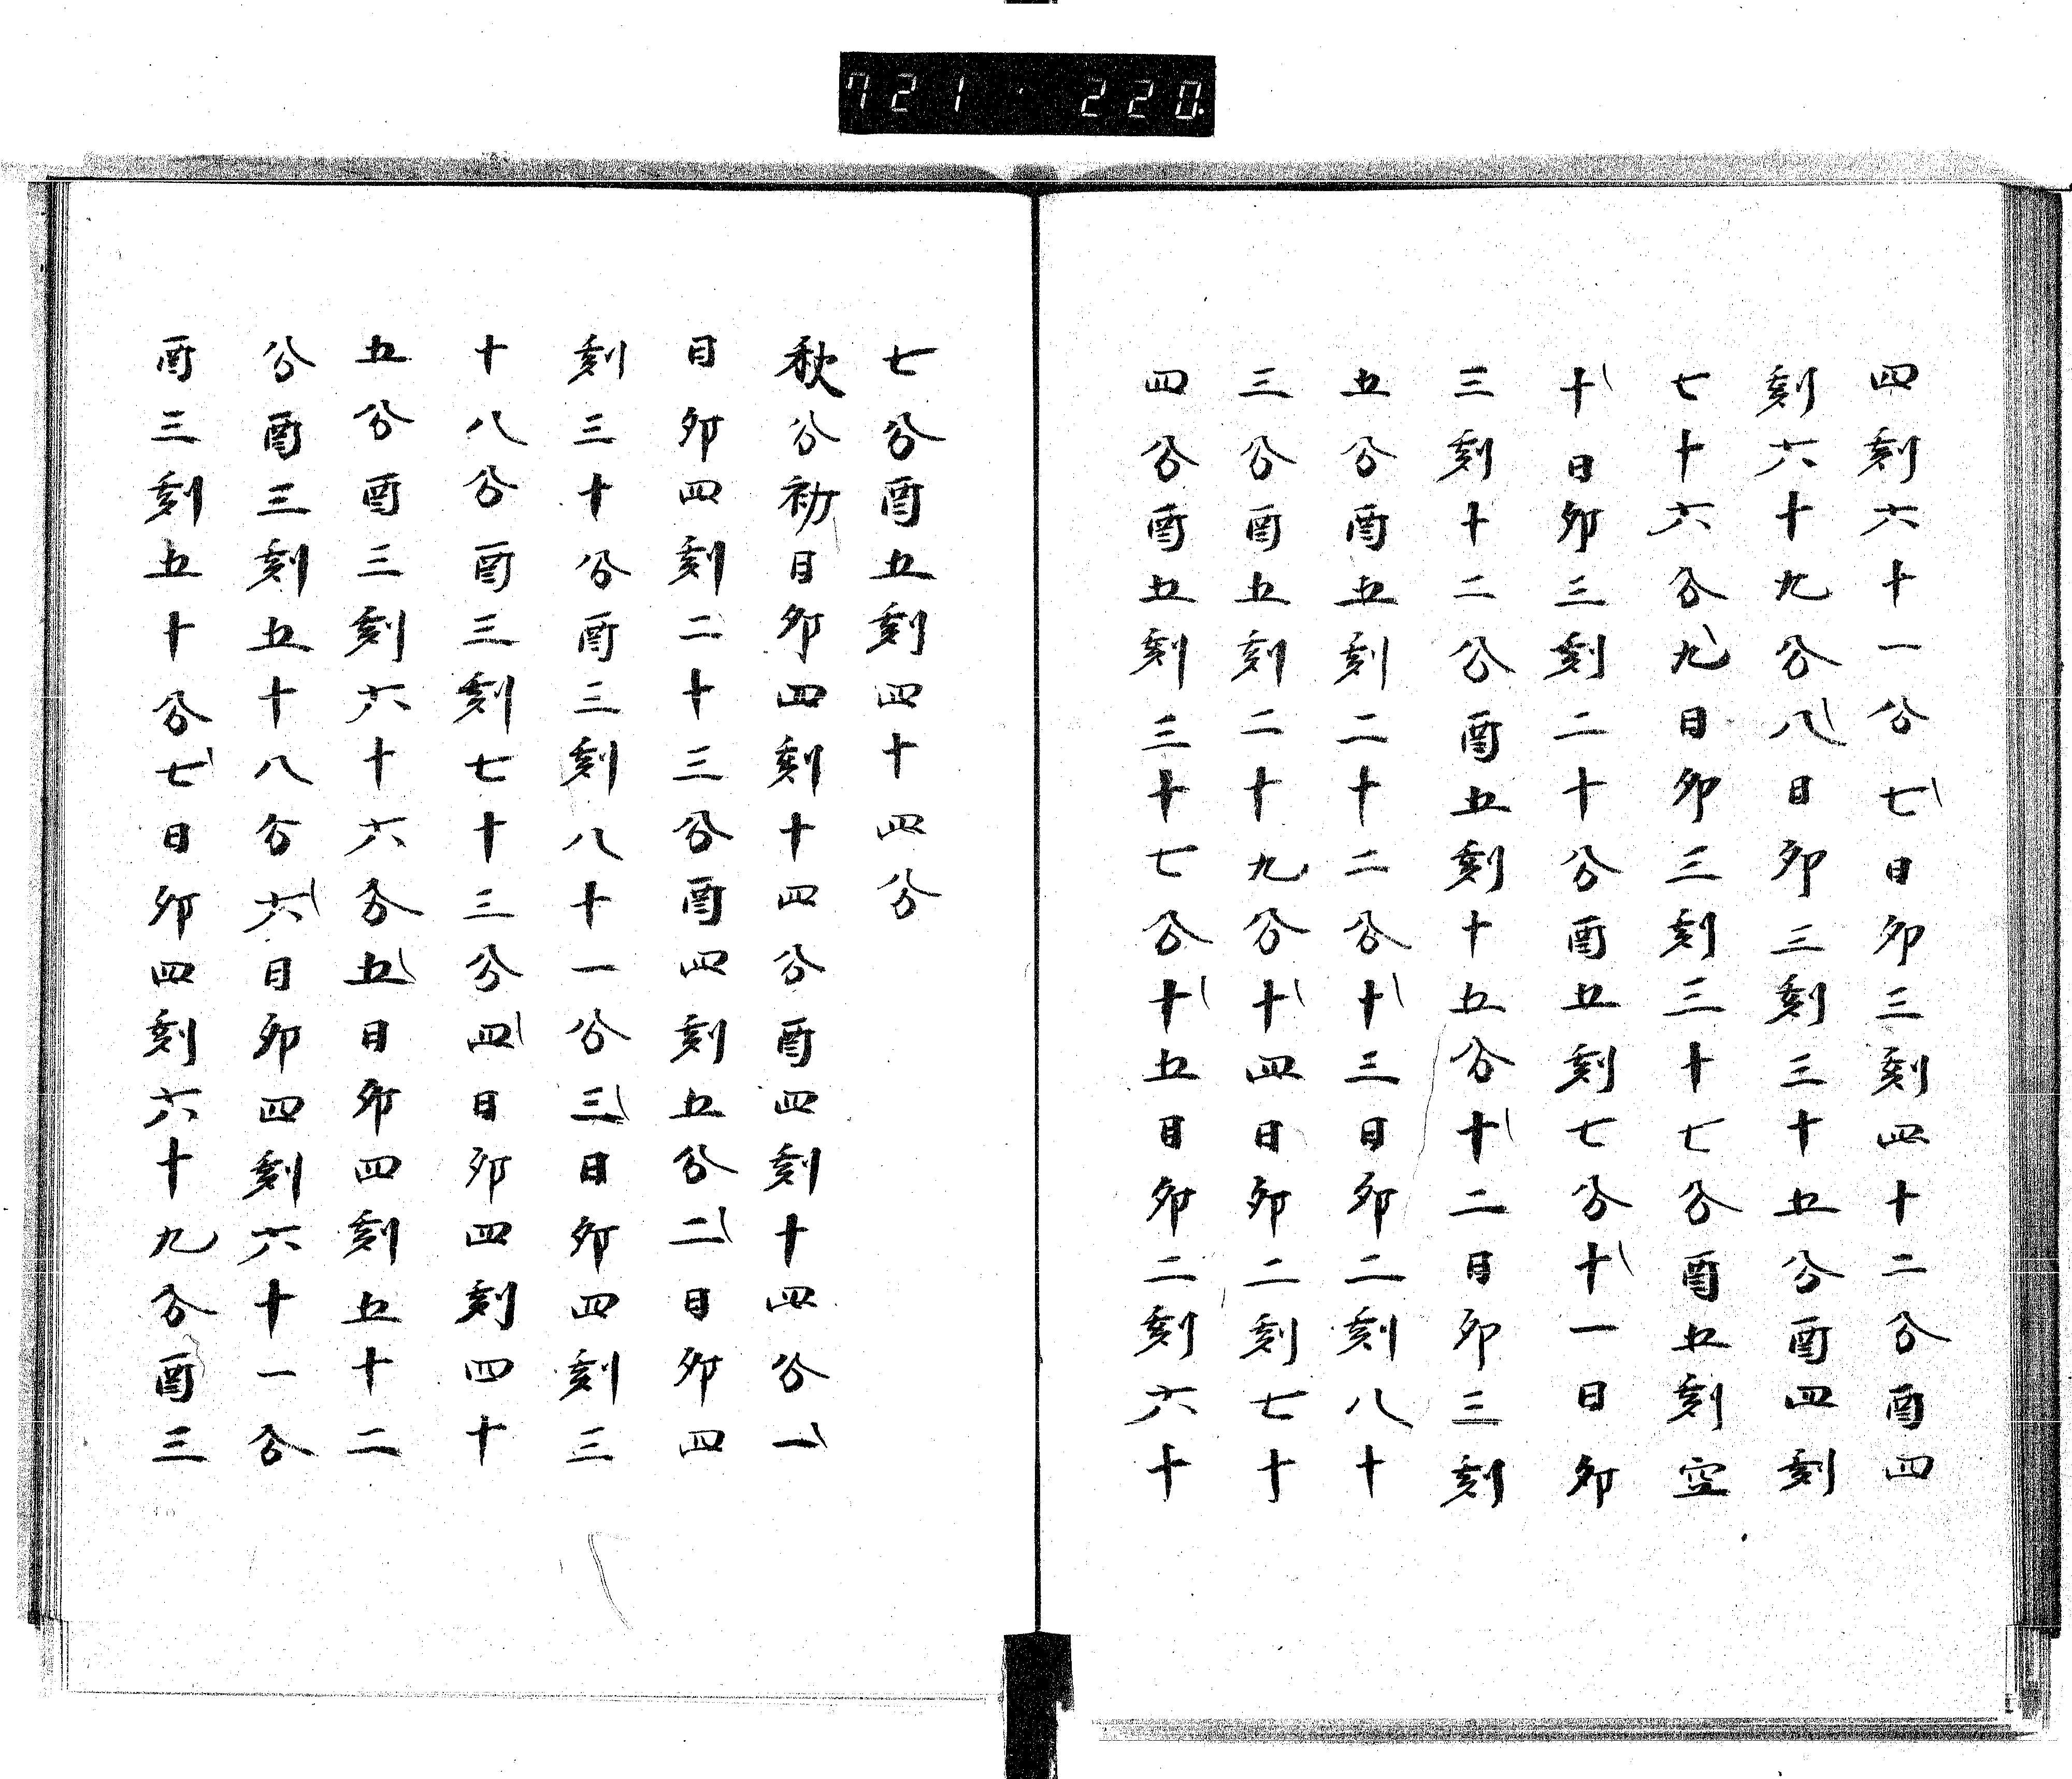 721.220.
四刻六十一分七日卯三刻四十二分酉四
刻六十九分八日卯三刻三十五分酉四刻
七十六分九日卯三刻三十七分酉五刻空
十日卯三刻二十分酉五刻七分十一日卯
三刻十二分酉五刻十五分十二日卯三刻
五分酉五刻二十二分十三日卯二刻八十
三分酉五刻二十九分十四日卯二刻七十
四分酉五刻三十七分十五日卯二刻六十
七分酉五刻四十四分
秋分初日卯四刻十四分酉四刻十四分一
日卯四刻二十三分酉四刻五分二日卯四
刻三十分酉三刻八十一分三日卯四刻三
十八分酉三刻七十三分四日卯四刻四十
五分酉三刻六十六分五日卯四刻五十二
分酉三刻五十八分六日卯四刻六十一分
酉三刻五十分七日卯四刻六十九分酉三